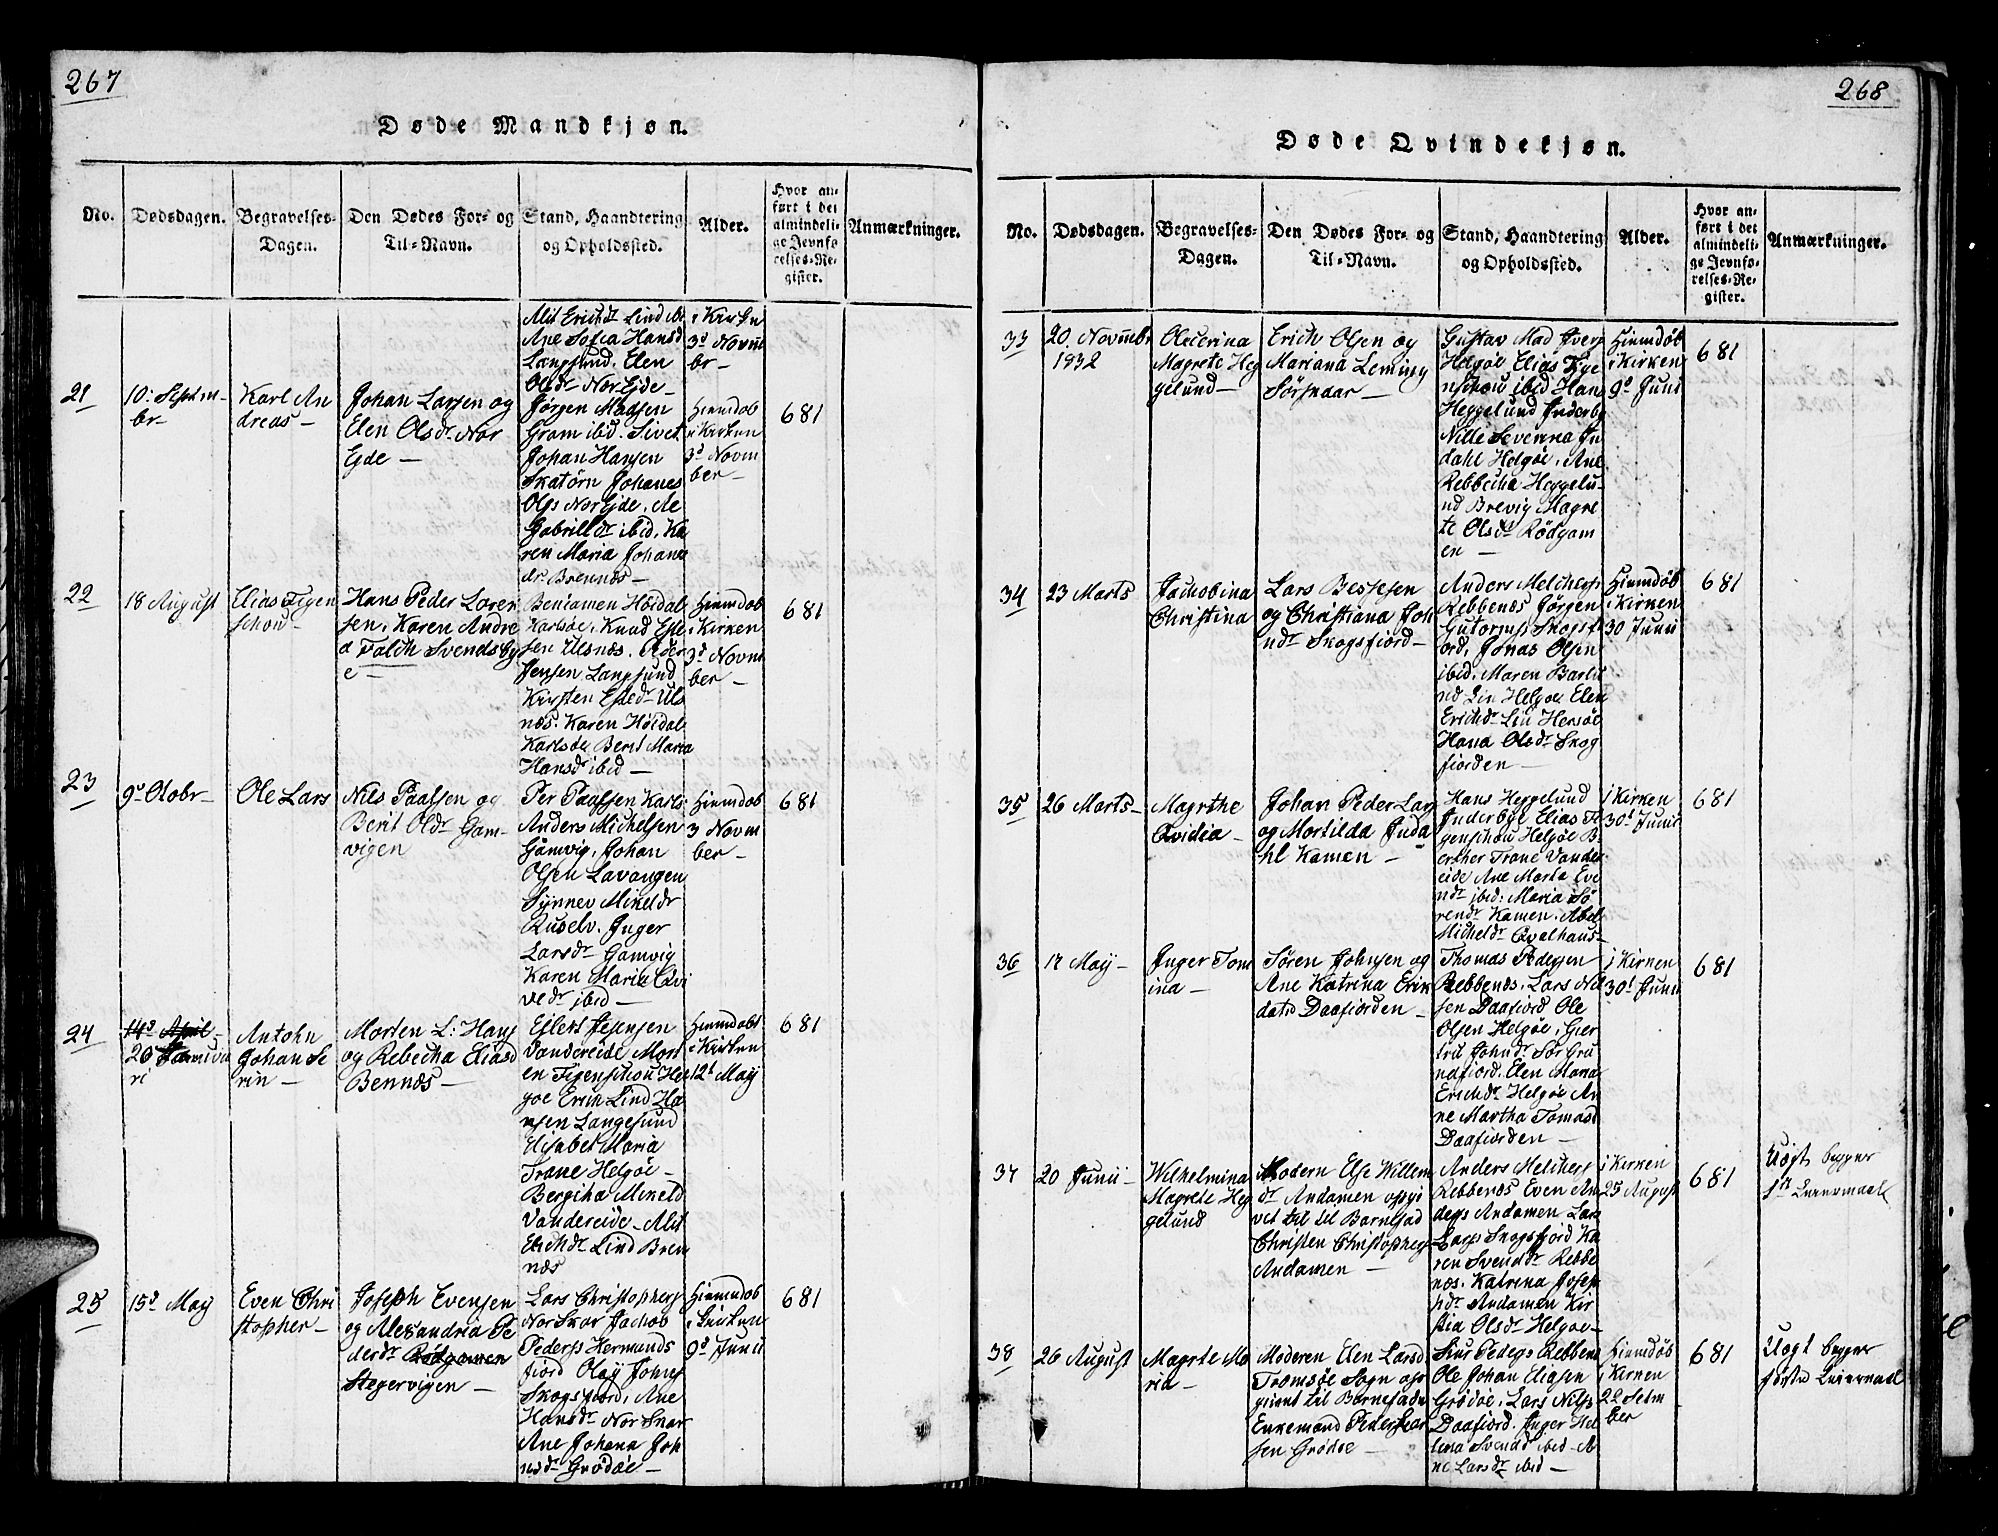 267
Døde Mandkjøn.
No.
Dødsdagen.
Begravelses-
Dagen.
Den Dødes For- og
Til-Navn.
Stand, Haandtering
og Opholdssted.
Alder.
Hvor an-
ført i det
almindeli-
ge Jevnfø
relses-Re-
gister.
Anmærkninger.
Alit Erichdr Lind ibd
Ane Sofia Hansd
Langsund. Elen
Olsdr Nor Ejde
Jørgen Madsen
Gram ibid. Sivet
Johan Hansen
Skatørn Johanes
Ols Nor Ejde. Ae
Gabrilldr ibid. Ka
ren Maria Johane
dr. Brennæs—
i Kirken
3d Novm
br—
21
10: Septm-
br—
Karl An
dreas—
Johan Larsen og
Elen Olsdr Nor
Ejde—
Hiemdøb
i Kirken
3d Novm
ber—
681
22
18 August
Elias Figen
schou—
Hans Peder Loren
sen, Karen Andre
a Falch Svendsby
e—
Beniamen Høidal
Karlsøe, Knud Este
sen Ulsnæs. Peder
Jensen Langsund
Kirsten Estedr Uls
næs. Karen Høidal
Karlsøe Berit Maria
Hansdr ibid—
Hiemdøb
i Kirken
3d Novm
ber—
681
23
9d Otobr—
Ole Lars
Nils Paalsen og
Berit Oldr Gam-
vigen
Per Paalsen Karls
Anders Michelsen
Gamvig, Johan
Olsen Lavangen
Synnev Mikeldr
Russelv. Inger
Larsdr Gamvig
Karen Maria Qvi
vedr ibid—
Hiemdøb
3 Novm
ber—
681
24
14d April
20 Januua
ri
Antohn
Johan Se
rin—
Morten L: Hans
og Rebecha Eliasd
Bennæs—
Ejlert Jesensen
Vandereide Mort
en Figenschou Hel
gøe Erich Lind Ha
nsen Langesund
Elisabet Maria
Trane Helgøe—
Bergitha Mikeld
Vandereide—Alit
Erichdr Lind Bren
næs
Hiemdøbt
i Kirken
12t Maij
681
25
15d Maij
Even Chri
stopher—
Joseph Evensen
og Alexandria Pe
dersdr Rødgamen
Stegervigen—
Lars Christophers
Nor Skar Jachob
Peders Hermands
fjord Olaij Johns
Skogsfjord, Ane
Hansdr Nor Skar
Ane Johana Joh
nsdr Grødøe—
Hiemdøb
i Kirken
9d Junii
681
268
Døde Qvindekjøn.
No.
Dødsdagen.
Begravelses-
Dagen.
Den Dødes For- og
Til-Navn.
Stand, Haandtering
og Opholdssted.
Alder.
Hvor an-
ført i det
almindeli-
ge Jevnfø-
relses-Re-
gister.
Anmærkninger.
33
20 Novmbr
1832
Olucrina
Magrete Heg
gelund—
Erich Olsen og
Mariana Leming
Sørsnaar—
Gustav Mad Ivers
Helgøe Elias Fige
nschou ibid Hans
Heggelund Inderby
Nille Severina In
dahl Helgøe, Ane
Rebbecha Heggelu-
nd Brevig Magre
te Olsdr Rødgam
en—
Hiemdøb
i Kirken
9d Juni
681
34
23 Marts
Jachobina
Christina
Lars Bessesen
og Christiana Joh
ndr Skogsfjord—
Anders Melchers
Rebbenæs Jørgen
Gutorms Skogsfi
ord, Jonas Olsen
ibid, Maren Barlu
nd Lin Helgøe Elen
Erichdr Lin Hersøe
Hana Olsdr Skog
fjorden—
Hiemdøb
i Kirken
30 Junii
681
35
26 Marts—
Magrthe
Ovidia—
Johan Peder Lars
og Mortilda Inda
hl Kamen—
Hans Heggelund
Inderbye Elias Fi
genschou Helgøe B
erther Trane Vander
eide Ane Marta Eve
ndr ibid. Maria Sø
rendr Kamen. Abel
Micheldr Qvalhaus—
i Kirken
30t Junii
681
36
17 Maij—
Inger Tom
ina—
Søren Johnsen og
Ane Katrina Erik
datr Daafjorden—
Thomas Pedersen
Rebbenæs, Lars Niel
sen Daafjord Ole
Olsen Helgøe, Gjer
trit Johndr Sør Gru
ndfjord, Elen Maria
Erichdr Helgøe An
ne Martha Tomasd
Daafjorden—
i Kirken
30t Junii
681
37
20 Junii—
Wilhelmina
Magrete Heg
gelund
Modern Else Willem
dr Andamen opgi
vet til til Barnefad
Christen Christophers
Andamen—
Anders Melchers
Rebbenæs Even An
ders Andamen Lars
Lars Skogsfjord Ka
ren Svendr Rebbe
næs. Katrina Josep
hdr Andamen Kir
stia Olsdr Helgøe—
i Kirken
25 August
681
Uægt begges
1te Leiermaal
38
26 August
Magrte Ma
ria—
Moderen Elen Larsd
Tromsøe Sogn op
givet til Barnefader
Enkemand Peder Lar
sen Grødøe—
Siur Peders Rebben
Ole Johan Eliasen
Grødøe, Lars Nils
Daafjord. Inger He
lina Svend ibid—A
ne Larsdr ibid—
Hiemdøb
i Kirken
22 Setm
ber
681
Uægt begges
første Leiermaal